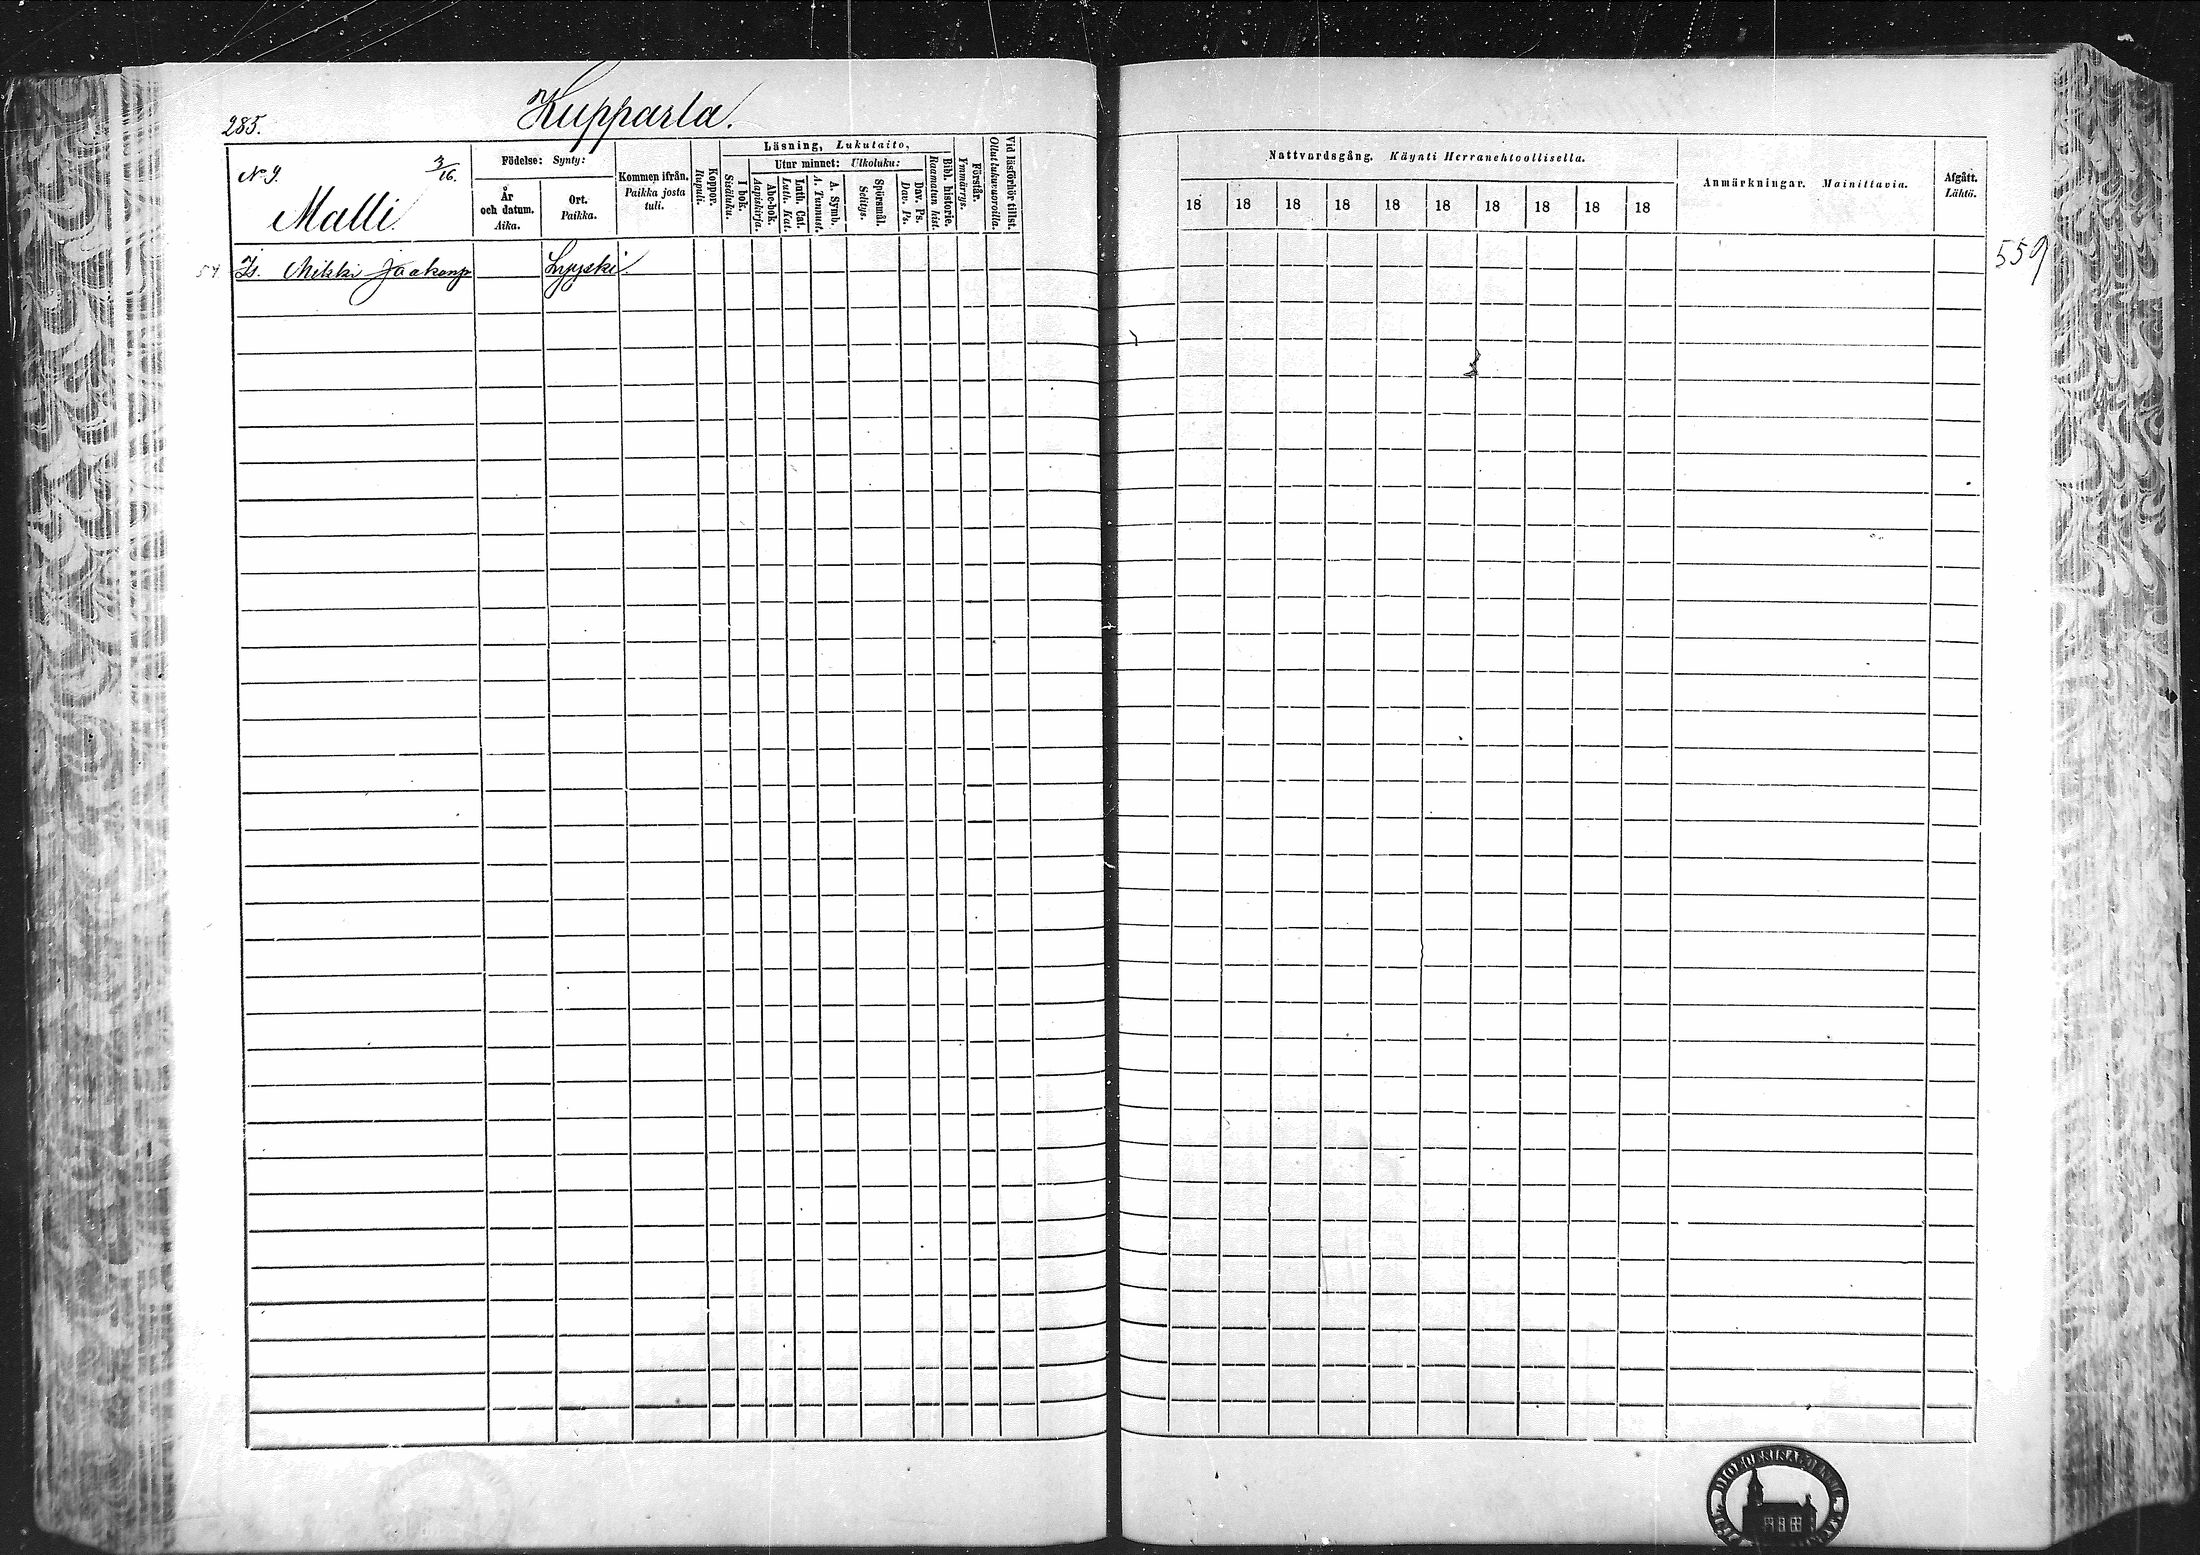 285.
Kupparla.
No 9.
3/16.
Malli.
Födelse: Synty:
År
och datum.
Aika.
Ort.
Paikka.
Kommen ifrån.
Paikka josta
tuli.
Koppor.
Rupuli.
Läsning, Lukutaito,
I bok.
Sisäluku.
Utur minnet: Ulkoluku:
Abc-bok.
Aapiskirja.
Luth. Cat.
Luth. Kat.
A. Symb.
A. Tunnust.
Spörsmål.
Selitys.
Dav. Ps.
Dav. Ps.
Bibl. historie.
Raamatun hist.
Förstår.
Ymmärrys.
Vid läsförhör tillst.
Ollut lukuvuoroilla.
Nattvardsgång. Käynti Herranehtoollisella.
18 18 18 18 18 18 18 18 18 18
Anmärkningar. Mainittavia.
Afgått.
Lähtö.
Is. Mikki Jaakonp Lyyski.
559